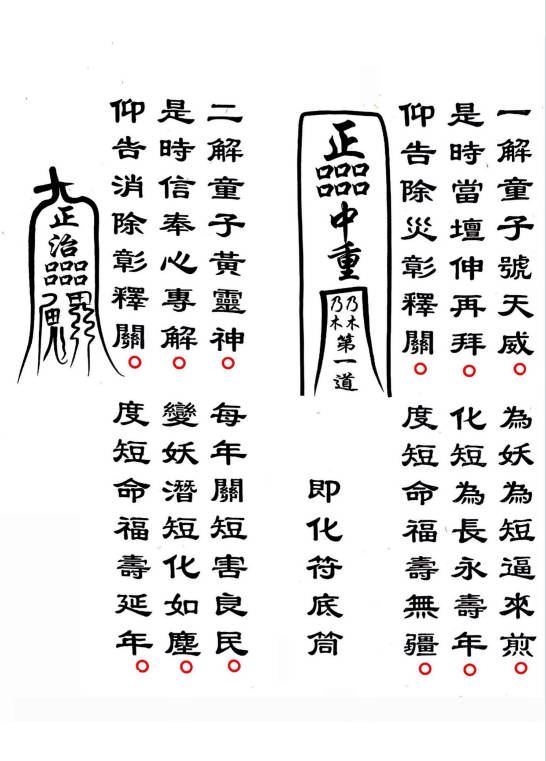 一解童子號天威○為妖為短逼來煎○
是時當壇伸再拜○化短為長永壽年○
仰告除災彰釋關○度短命福壽無疆○
正
中重
乃木乃木
第一道
即化符底筒
二解童子黃靈神○每年關短害良民○
是時信奉心專解○變妖潛短化如塵○
仰告消除彰釋關○度短命福壽延年○
正治